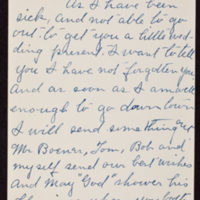 As I have been
sick, and not able to go
out to get you a little wed-
ding present I want to tell
you I have not forgotten you
and as soon as I am well
enough to go down town
I will send something up
Mr Boener, Tom, Bob and
myself send our best wishes
and May "God" shower his